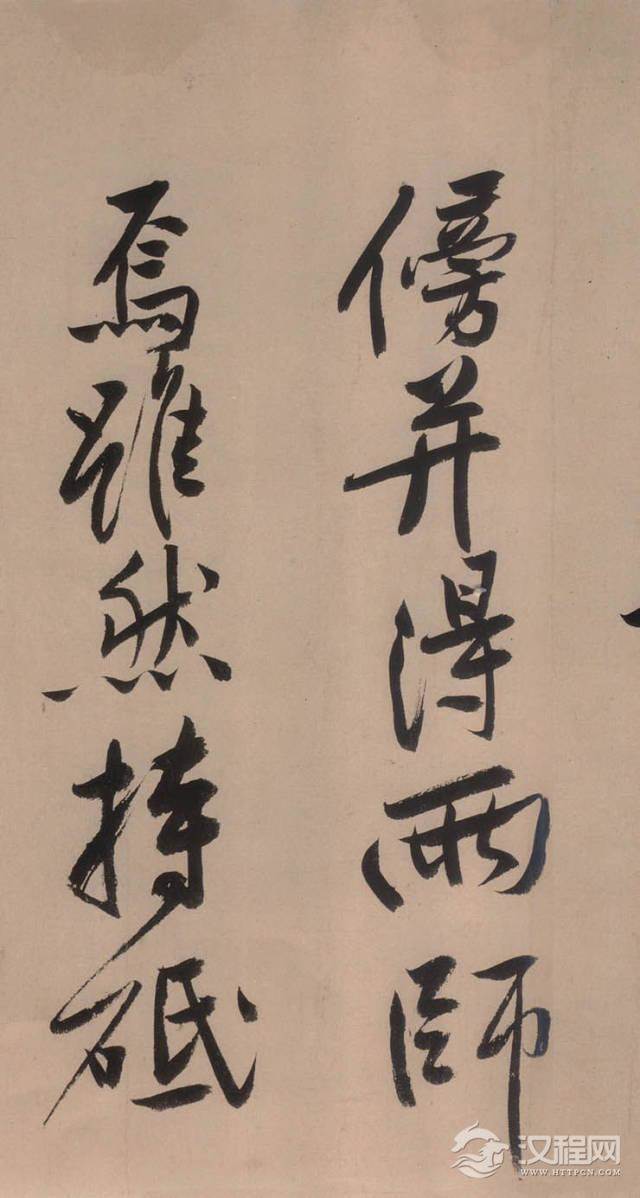 傍并得两師
焉雖然持砥
汉程网
WWW.HTTPCN.COM